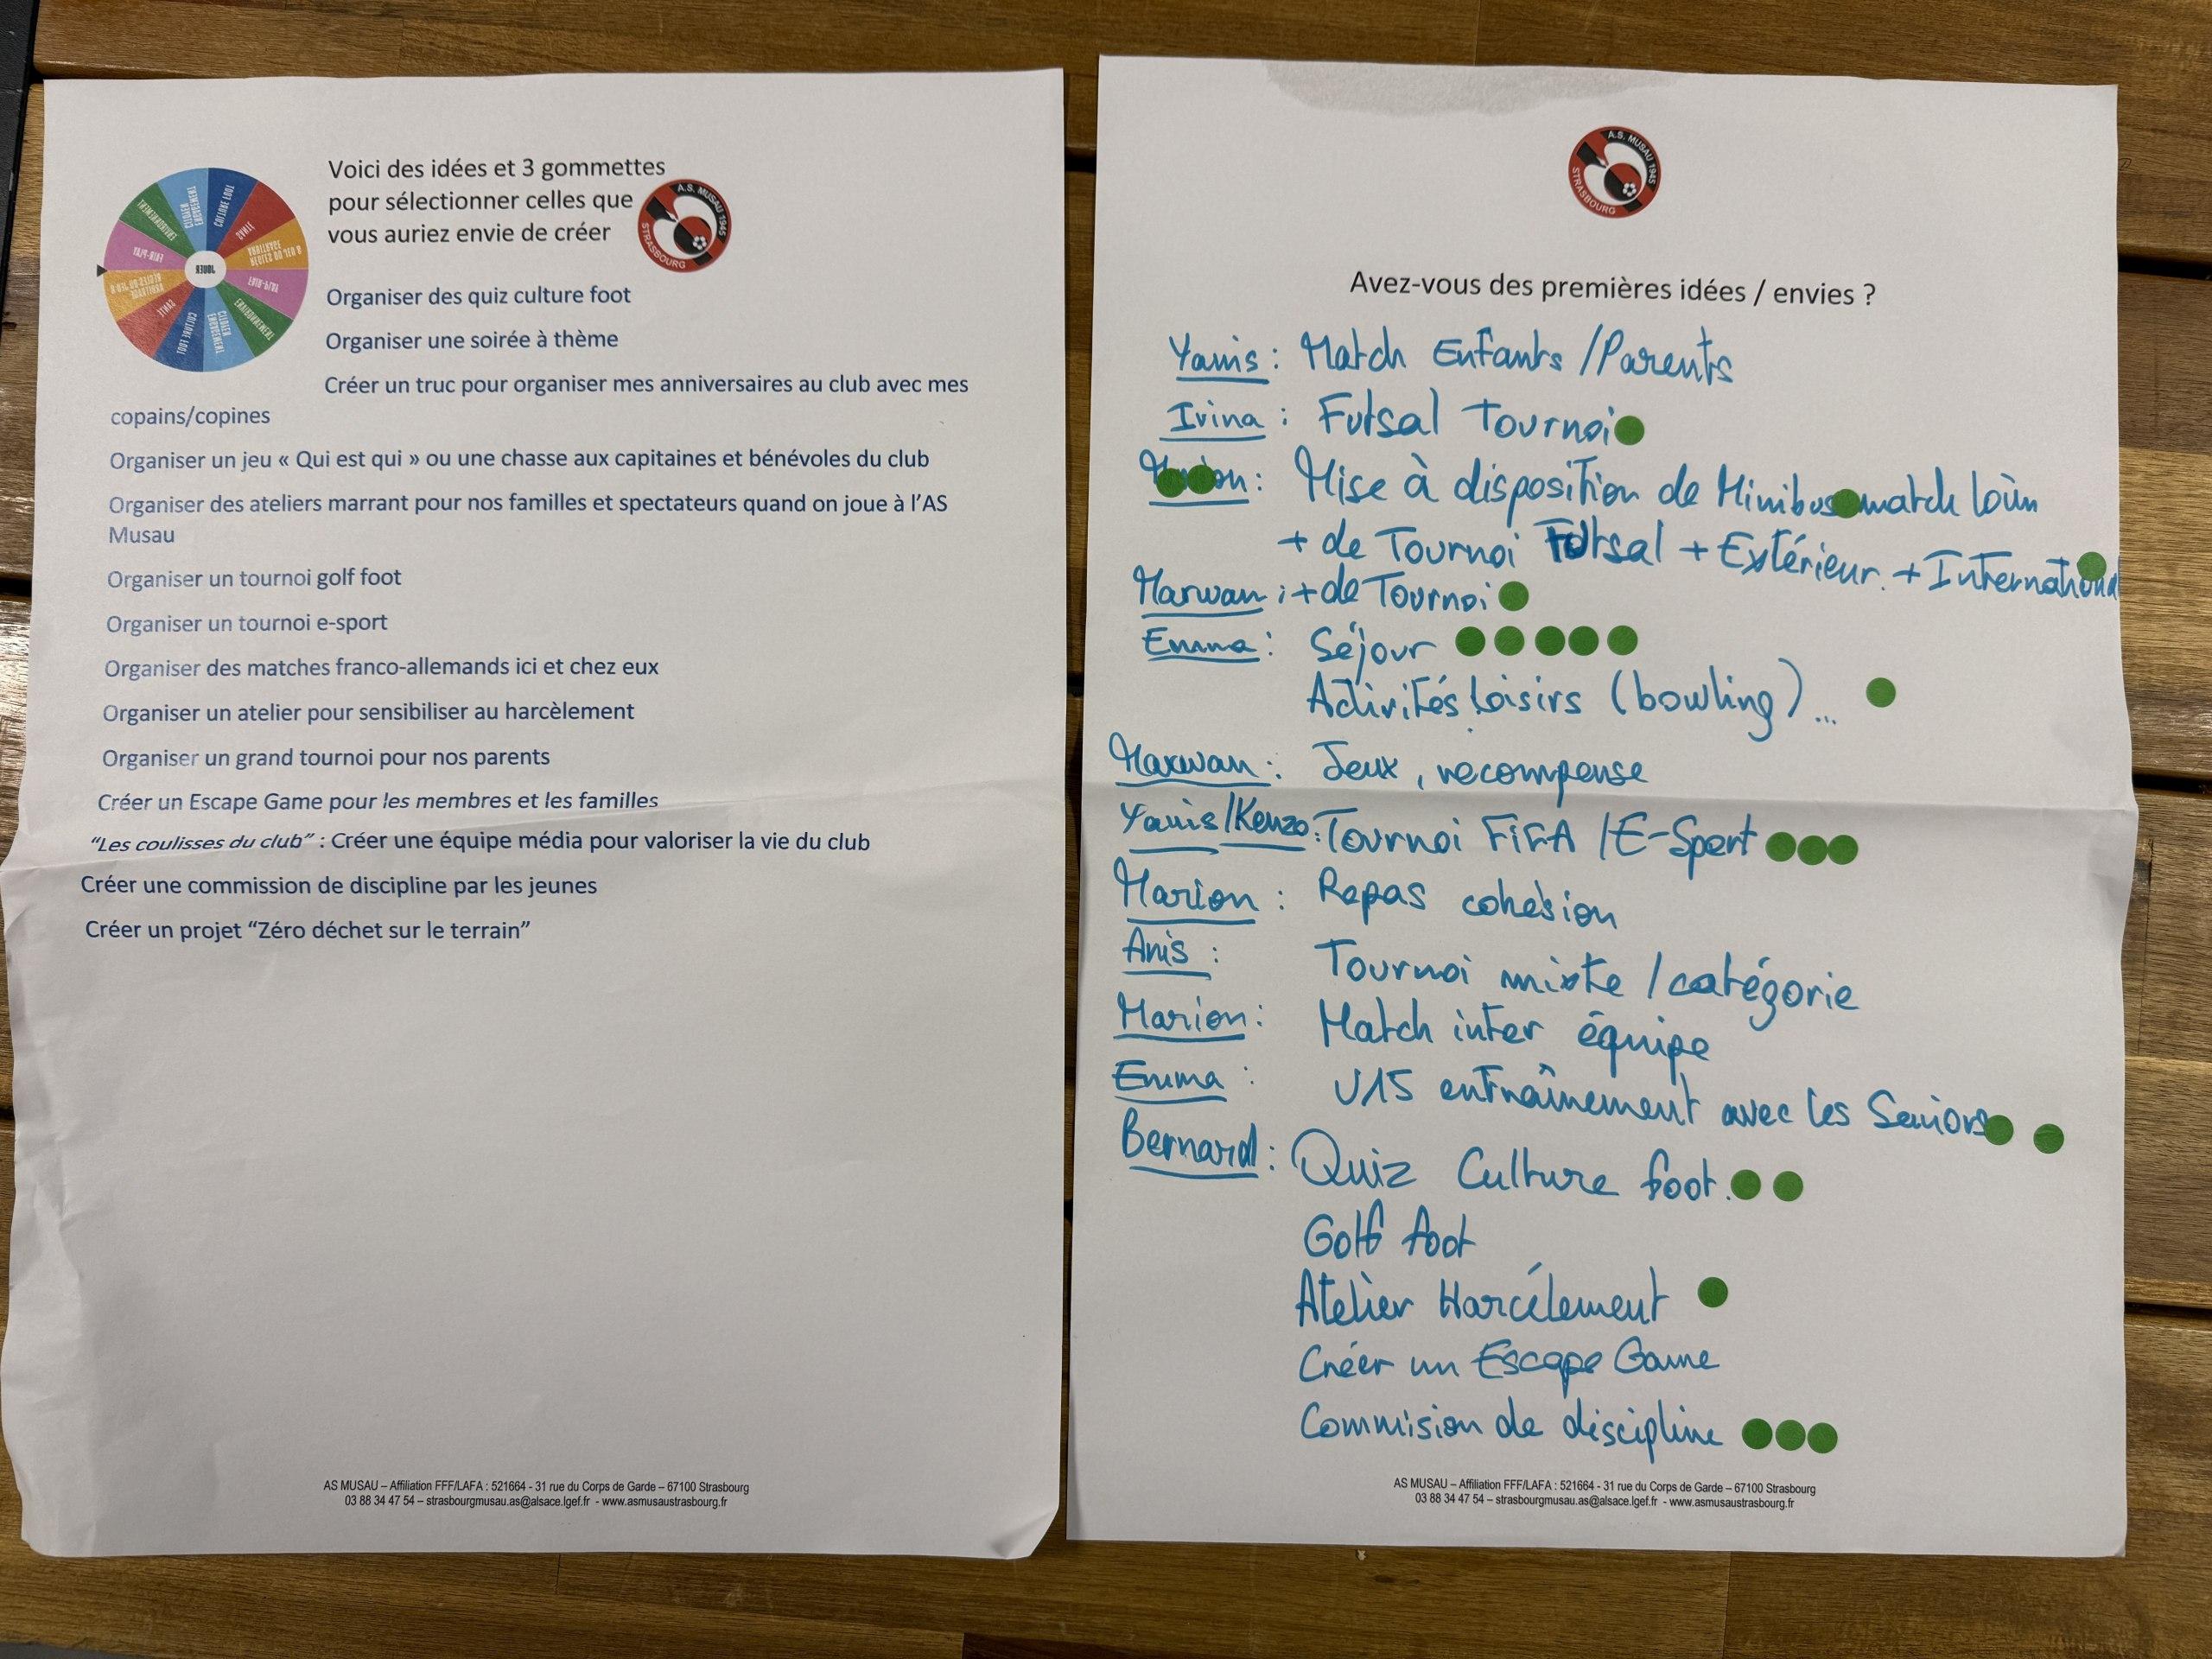 Voici des idées et 3 gommettes
pour sélectionner celles que
vous auriez envie de créer
A.S. MUSAU 1945
STRASBOURG
CULTURE FOOT
ENVIRONNEMENT
FAIR-PLAY
JOUER
Organiser des quiz culture foot
Organiser une soirée à thème
Créer un truc pour organiser mes anniversaires au club avec mes
copains/copines
Organiser un jeu « Qui est qui » ou une chasse aux capitaines et bénévoles du club
Organiser des ateliers marrant pour nos familles et spectateurs quand on joue à l’AS
Musau
Organiser un tournoi golf foot
Organiser un tournoi e-sport
Organiser des matches franco-allemands ici et chez eux
Organiser un atelier pour sensibiliser au harcèlement
Organiser un grand tournoi pour nos parents
Créer un Escape Game pour les membres et les familles
“Les coulisses du club” : Créer une équipe média pour valoriser la vie du club
Créer une commission de discipline par les jeunes
Créer un projet “Zéro déchet sur le terrain”
AS MUSAU – Affiliation FFF/LAFA : 521664 - 31 rue du Corps de Garde – 67100 Strasbourg
03 88 34 47 54 – strasbourgmusau.as@alsace.lgef.fr - www.asmusaustrasbourg.fr
A.S. MUSAU 1945
STRASBOURG
Avez-vous des premières idées / envies ?
Yanis : Match Enfants / Parents
Irina : Futsal Tournoi
Mise à disposition de Minibus match loin
+ de Tournoi Futsal + Extérieur. + International
Marwan : + de Tournoi
Emma : Séjour
Activités Loisirs (bowling) ...
Marwan : Jeux, recompense
Yanis/Kenzo : Tournoi FiFA / E-Sport
Marion : Repas cohésion
Anis : Tournoi mixte / catégorie
Marion : Match inter équipe
Emma : U15 entraînement avec les Seniors
Bernard : Quiz Culture foot.
Golf foot
Atelier Harcélement
Créer un Escape Game
Commision de discipline
AS MUSAU – Affiliation FFF/LAFA : 521664 - 31 rue du Corps de Garde – 67100 Strasbourg
03 88 34 47 54 – strasbourgmusau.as@alsace.lgef.fr - www.asmusaustrasbourg.fr